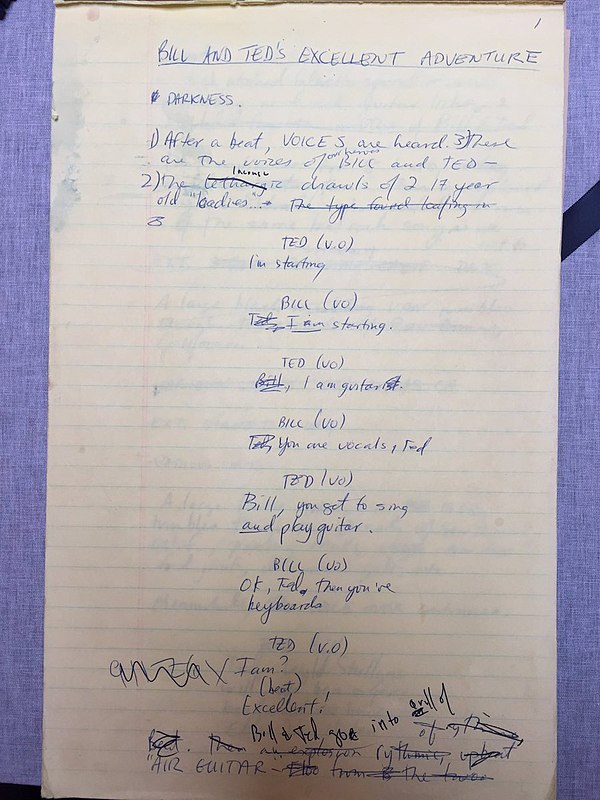 1
BILL AND TED'S EXCELLENT ADVENTURE
DARKNESS.
1) After a beat, VOICES are heard. 3) These
are the voices of our heroes BILL and TED —
2) The lethargic drawls of 2 17 year
old "badies"... The type found loafing in
TED (V.O)
I'm starting
BILL (VO)
Ted, I am starting.
TED (VO)
Bill, I am guitarist.
BILL (VO)
Ted, You are vocals, Ted
TED (VO)
Bill, you get to sing
and play guitar.
BILL (VO)
OK, Ted, then you're
keyboards
TED (V.O)
I am?
(beat)
Excellent!
Bill & Ted go into a riff of
Beat. Then an explosion of rythmic, upbeat
"AIR GUITAR" from the two